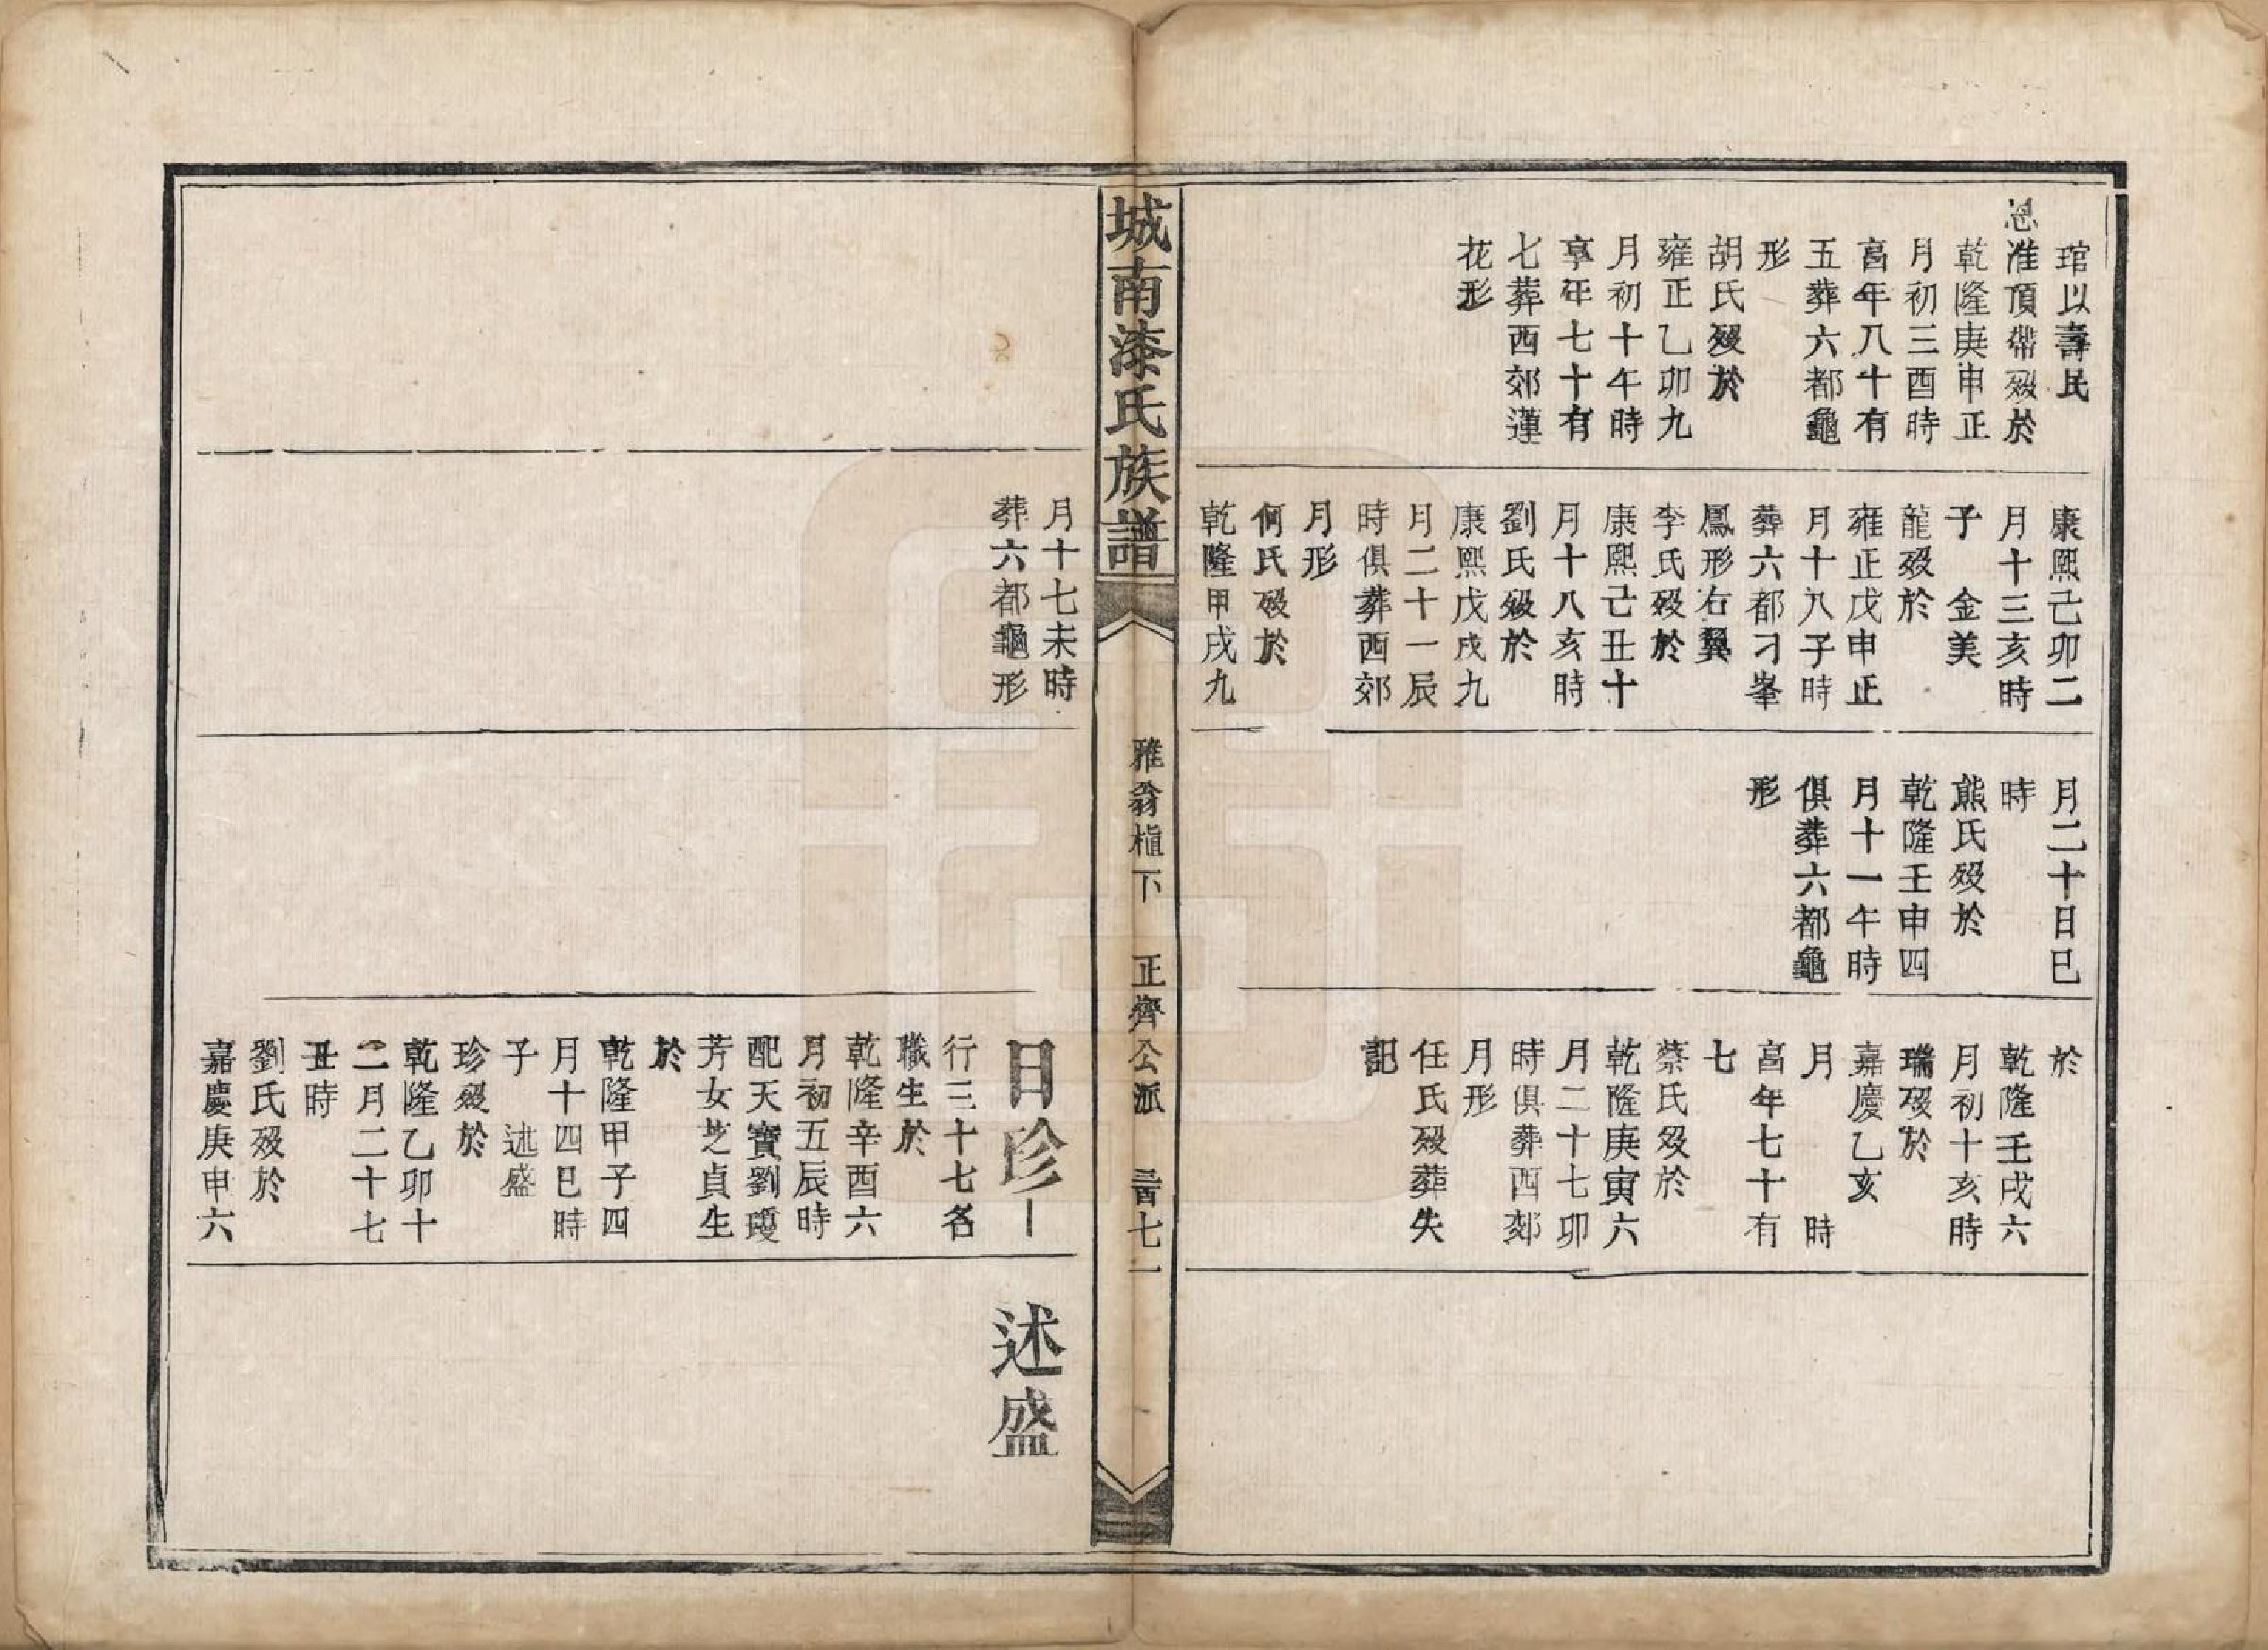 琯以壽民
恩准頂帶殁於
乾隆庚申正
月初三酉時
髙年八十有
五葬六都龜
形
胡氏殁於
雍正乙卯九
月初十午時
享年七十有
七葬西郊蓮
花形
康熙己卯二
月十三亥時
子　金美
龍殁於
雍正戊申正
月十八子時
葬六都刁峯
鳳形右翼
李氏殁於
康熙己丑十
月十八亥時
劉氏殁於
康熙戊戌九
月二十一辰
時俱葬西郊
月形
何氏殁於
乾隆甲戌九
月二十日巳
時
熊氏殁於
乾隆壬申四
月十一午時
俱葬六都龜
形
於
乾隆壬戌六
月初十亥時
瑞殁於
嘉慶乙亥
月　　時
髙年七十有
七
蔡氏殁於
乾隆庚寅六
月二十七卯
時俱葬西郊
月形
任氏殁葬失
記
城南漆氏族譜
雅翁植下　正齊公派　七一
月十七未時
葬六都龜形
日珍
行三十七名
職生於
乾隆辛酉六
月初五辰時
配天寶劉瓊
芳女芝貞生
於
乾隆甲子四
月十四巳時
子　述盛
珍殁於
乾隆乙卯十
二月二十七
丑時
劉氏殁於
嘉慶庚申六
述盛